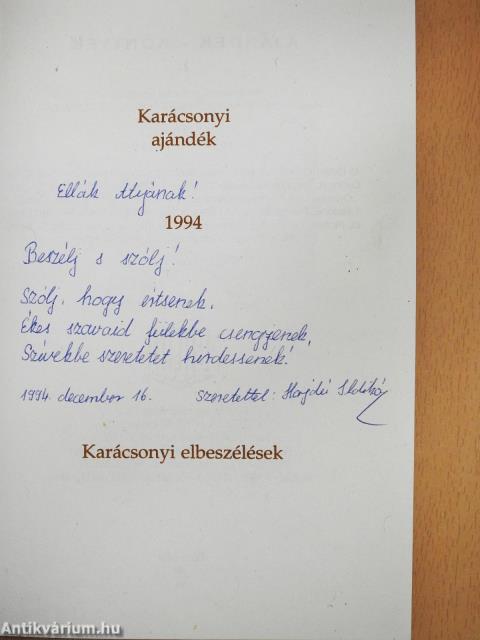 Karácsonyi
ajándék
Ellák Atyának!
1994
Beszélj s szólj!
Szólj, hogy értsenek,
Ékes szavaid fülekbe csengjenek,
Szívekbe szeretetet hirdessenek!
1994. december 16. Szeretettel: Hajdú Ildikó
Karácsonyi elbeszélések
Antikvárium.hu